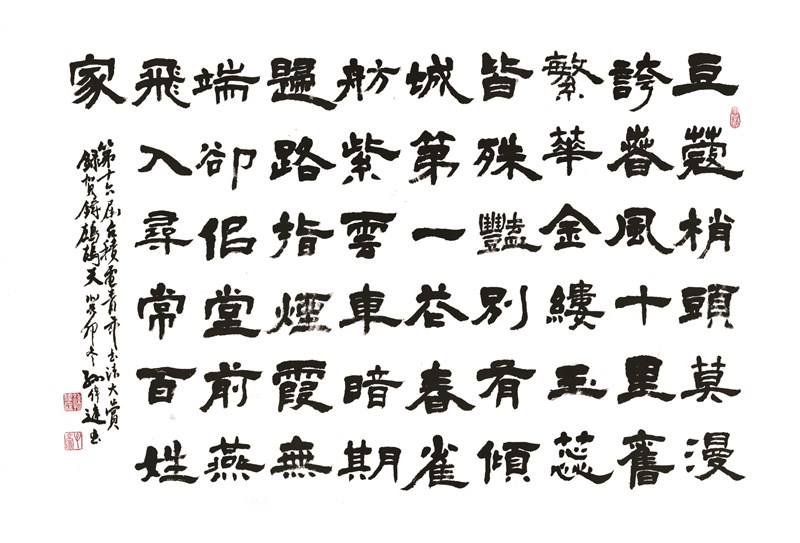 豆蔻梢頭莫漫
誇春風十里舊
繁華金縷玉蕊
皆殊豔別有傾
城第一花春雀
舫紫雲車暗期
歸路指煙霞無
端卻佀堂前燕
飛入尋常百姓
家
第十六屆台積電青年書法大賞
錄賀鑄鷓鴣天 癸卯冬 進書